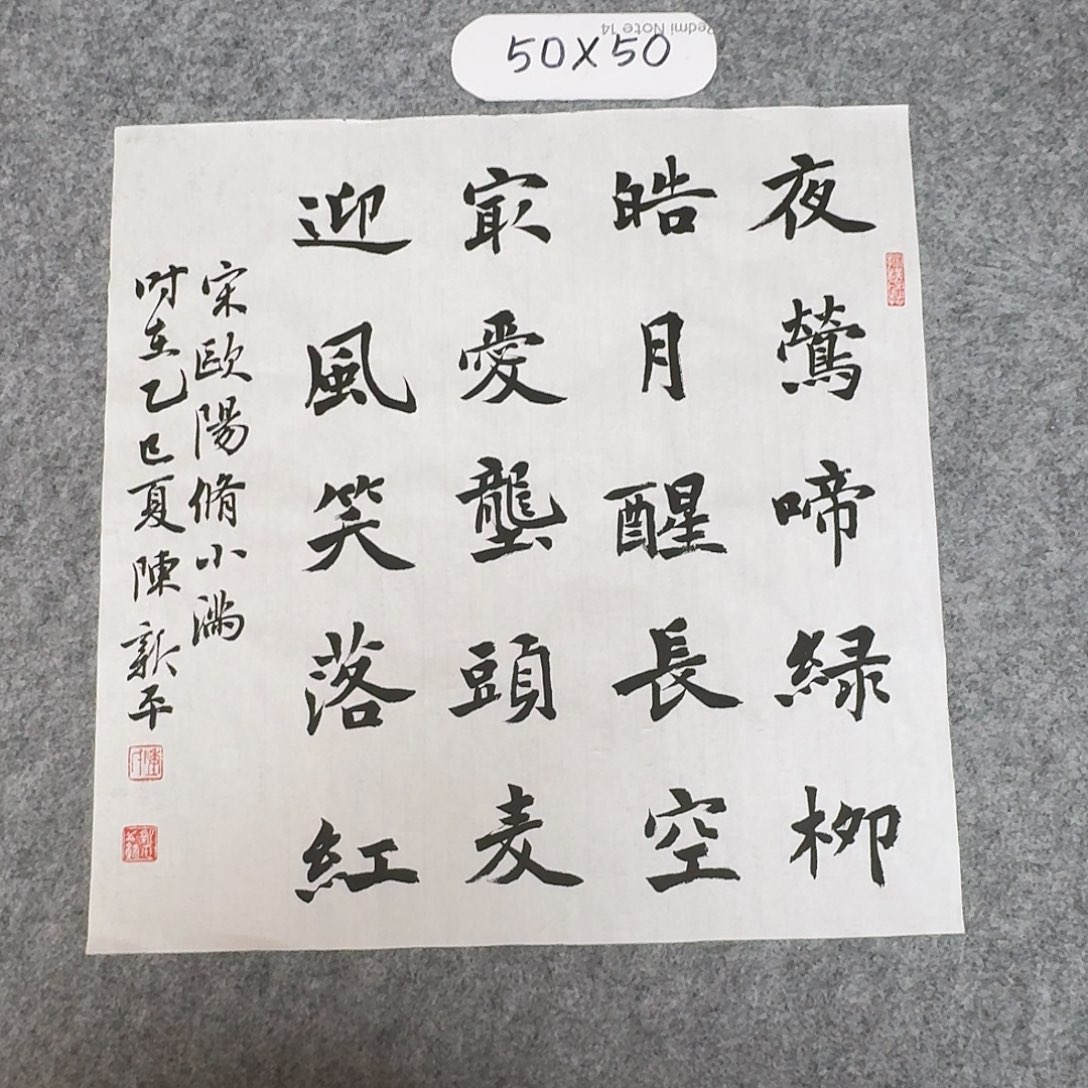 50X50
Redmi Note 14
夜鶯啼緑柳
皓月醒長空
㝡愛壟頭麦
迎風笑落紅
宋歐陽脩小滿
时在乙巳夏陳新平